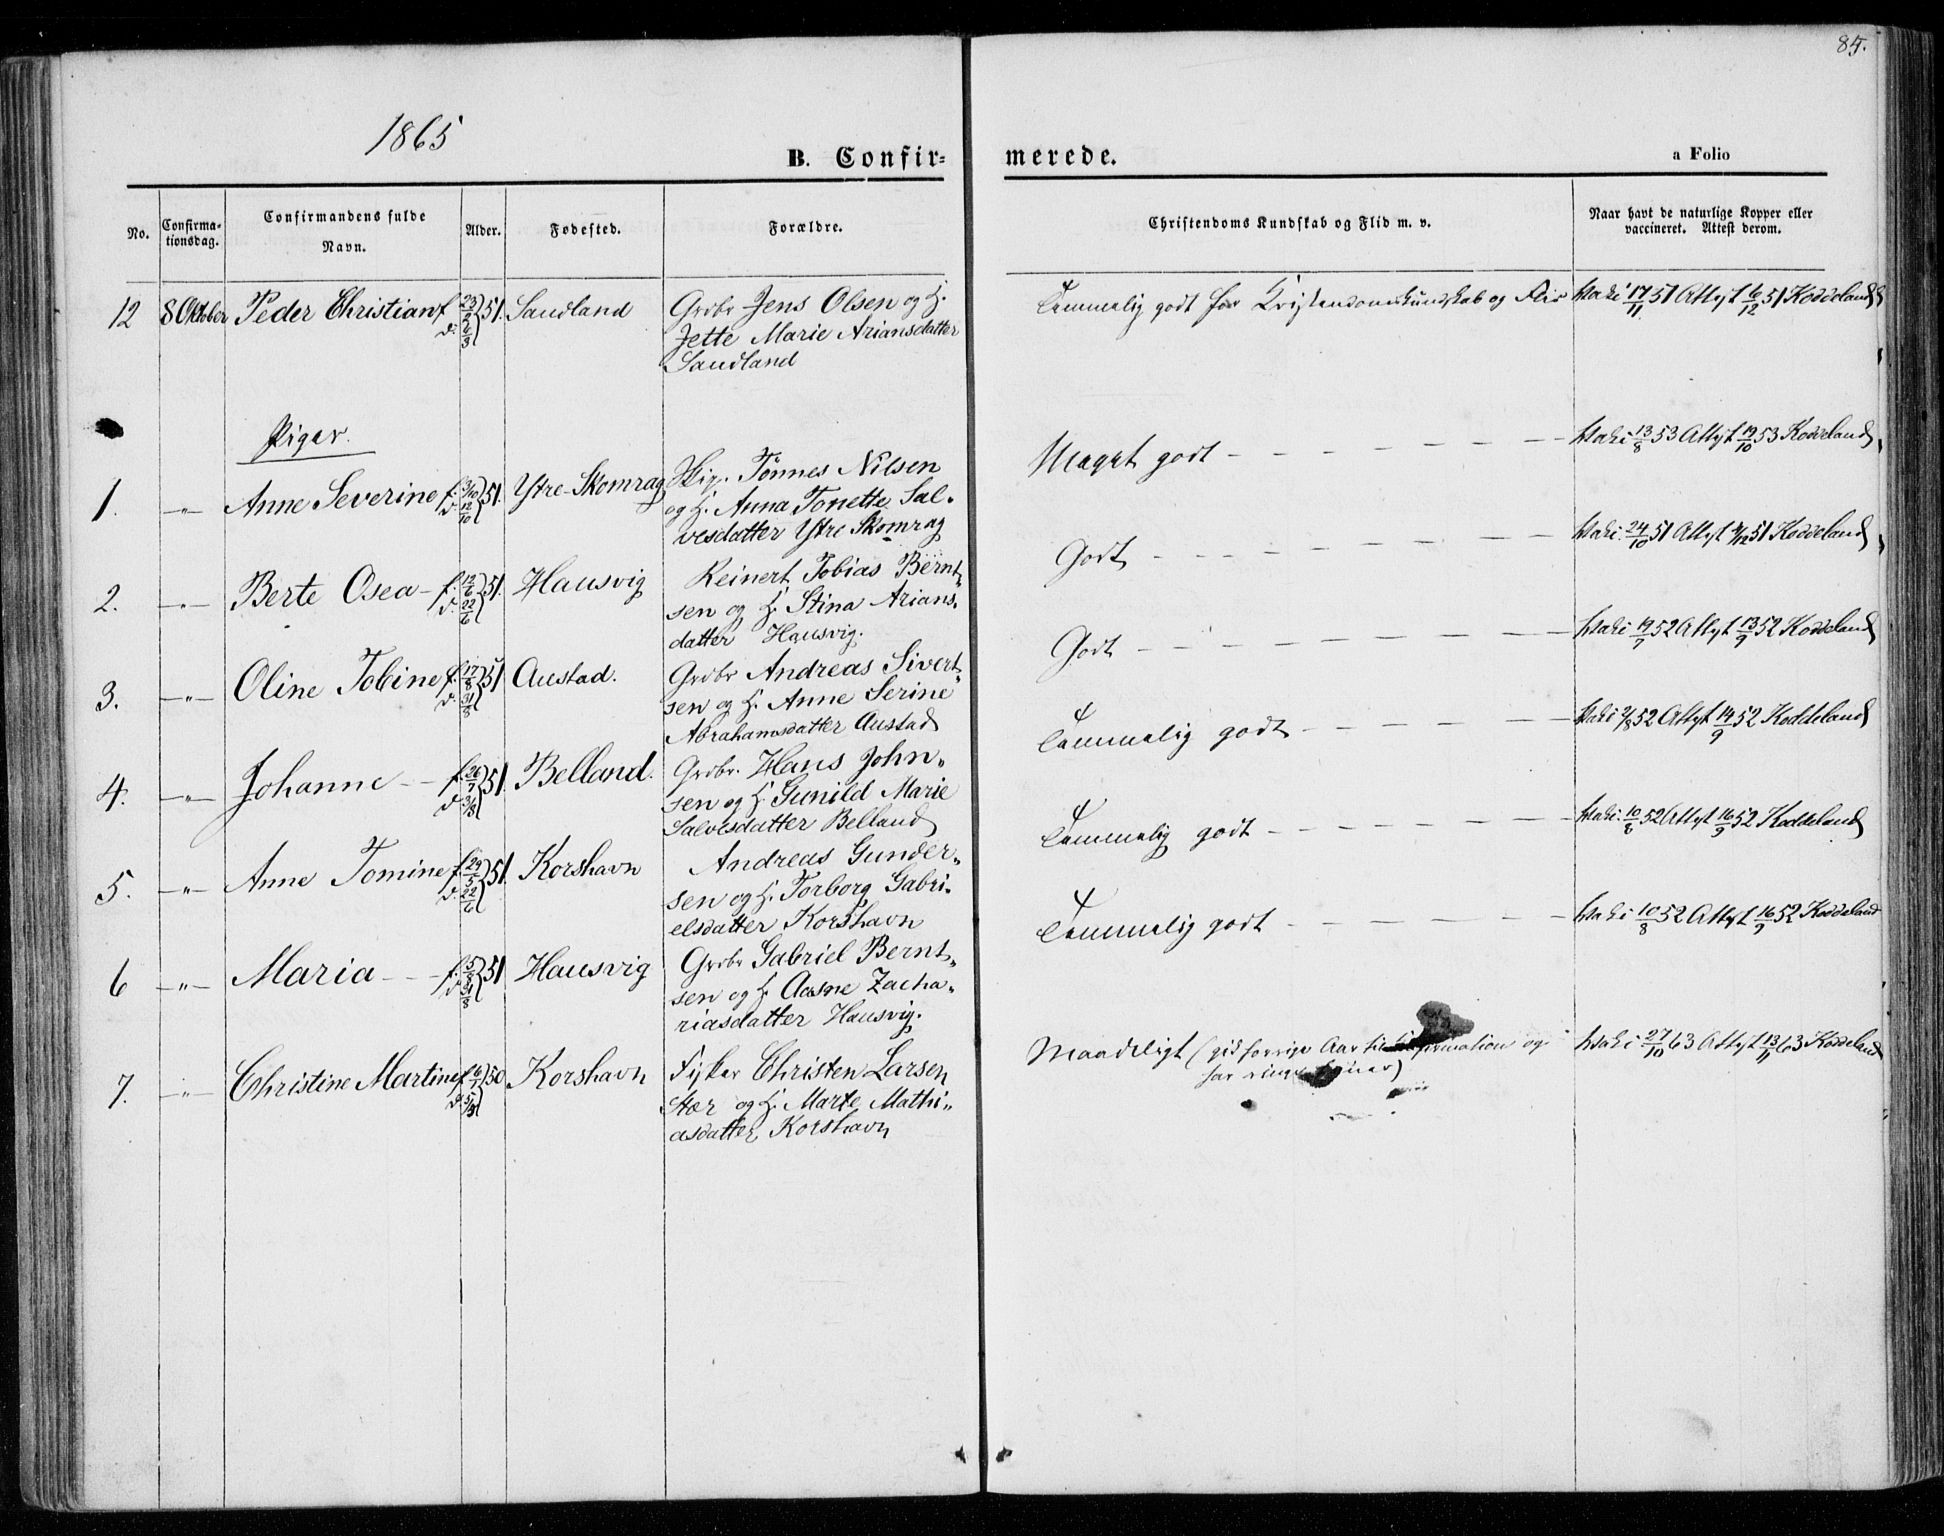 85.
1865
B. Confir= merede. a Folio
No. Confirma-tionsdag. Confirmandens fulde Navn. Alder. Fødested. Forældre. Christendoms Kundskab og Flid m. v. Naar havt de naturlige Kopper eller vaccineret. Attest derom.
12 8 Oktober Peder Christian f. 23/2 d. 2/3 51. Sandland
Grdbr Jens Olsen og H.
Jette Marie Ariansdatter
Sandland
Temmelig godt for Kristendomskundskab og Flid
Vac: 17/11 51 Attest 6/12 51 Koddeland
Piger.
1. -"- Anne Severine f. 3/10 d. 12/10 51. Ytre-Skomrag
Tønnes Nilsen
og H. Anna Tonette Sal-
vesdatter Ytre Skomrag
Meget godt
Vac: 13/8 53 Attest 19/10 53 Koddeland
2. -"- Berte Osea f. 12/6 d. 22/6 51. Hausvig
Reinert Tobias Bernt-
sen og H. Stina Arians-
datter Hausvig.
Godt
Vac: 24/10 51 Attest 51 Koddeland
3. -"- Oline Tobine f. 17/8 d. 31/8 51 Austad.
Grdbr Andreas Sivert-
sen og H. Anne Serine
Abrahamsdatter Austad
Godt
Vac: 52 Attest 13/9 52 Koddeland
4. -"- Johanne f. 26/7 d. 3/8 51. Belland.
Grdbr. Hans John-
sen og H. Gunild Marie
Salvesdatter Belland
Temmelig godt
Vac: 2/8 52 Attest 14/9 52 Koddeland
5. -"- Anne Tomine f. 29/5 d. 22/6 51. Korshavn
Andreas Gunder-
sen og H. Torborg Gabri-
elsdatter Korshavn
Temmelig godt
Vac: 10/8 52 Attest 16/9 52 Koddeland
6 -"- Maria f. 5/8 d. 31/8 51 Hausvig
Grdbr Gabriel Bernt-
sen og H. Aasne Zacha-
riasdatter Hausvig.
Temmelig godt
Vac: 10/8 52 Attest 16/9 52 Koddeland
7. -"- Christine Martine f. 6/1 d. 5/3 50 Korshavn
Fisker Christen Larsen
Stær og H. Marte Mathi-
asdatter Korshavn
Maadeligt (gik forrige Aar til Confirmation og
har ringe Evner)
Vac: 27/10 63 Attest 13/11 63 Koddeland